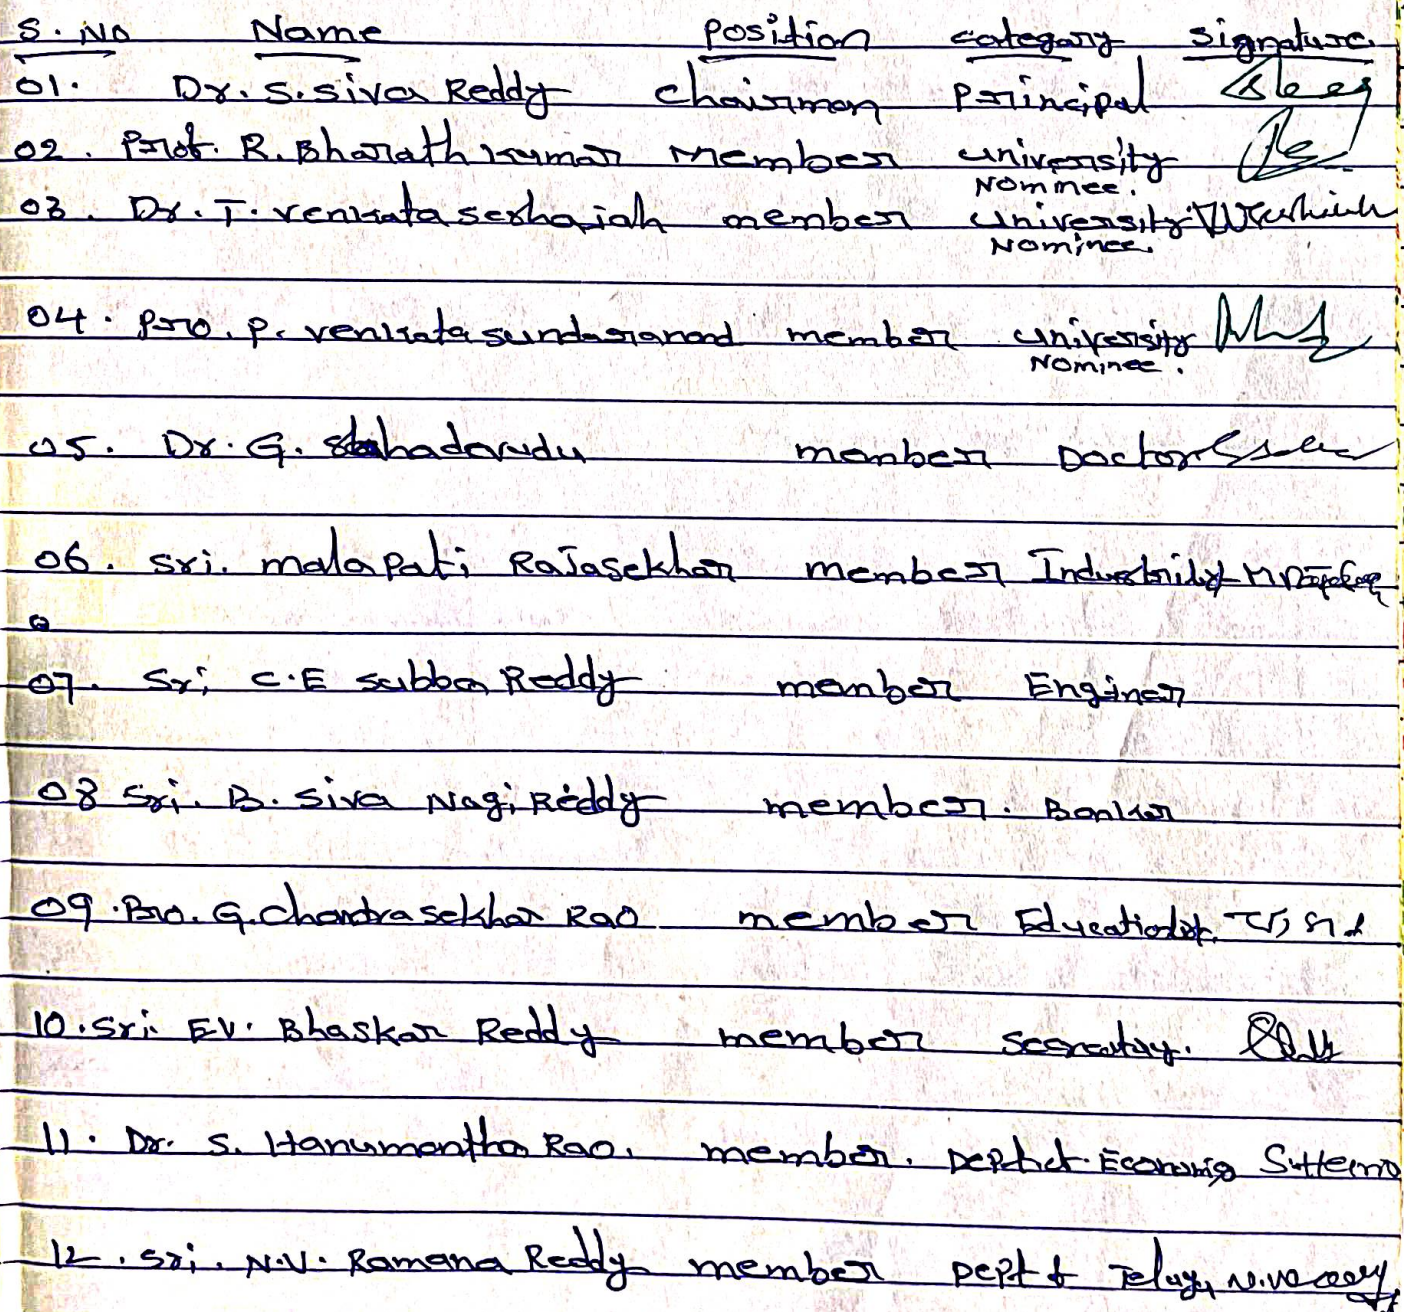 S. No Name Position category Signature
01. Dr. S. Siva Reddy Chairman Principal
02. Prof. R. Bharath Kumar Member University
Nominee.
03. Dr. T. Venkata Seshaiah member University
Nominee.
04. Pro. P. Venkata Sundaranand member University
Nominee.
05. Dr. G. Sahadevudu member Doctor
06. Sri. malapati Rajasekhar member
07. Sri C.E Subba Reddy member Enginer
08 Sri. B. Siva Nagi Reddy member. Banker
09. Pro. G. Chandra Sekhar Rao member
10. Sri. EV. Bhaskar Reddy member
11. Dr. S. Hanumantha Rao. member.
12. Sri. N.V. Ramana Reddy member